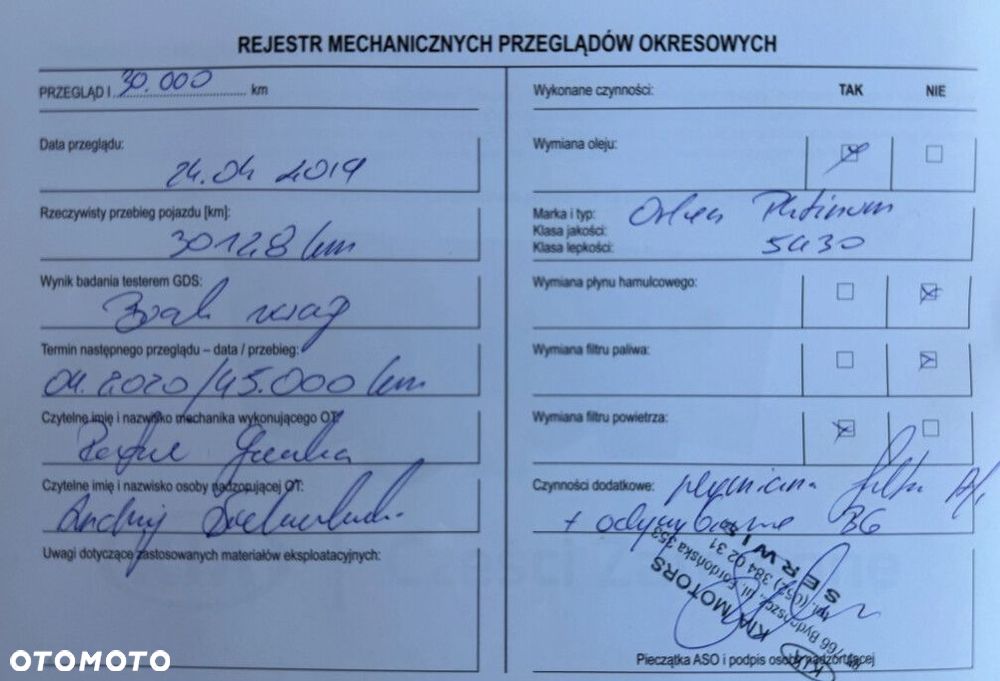 REJESTR MECHANICZNYCH PRZEGLĄDÓW OKRESOWYCH
PRZEGLĄD I 30.000 km
Data przeglądu:
24.04 2019
Rzeczywisty przebieg pojazdu [km]:
30128 km
Wynik badania testerem GDS:
Brak uwag
Termin następnego przeglądu – data / przebieg:
04.2020/45.000 km
Czytelne imię i nazwisko mechanika wykonującego OT:
Czytelne imię i nazwisko osoby nadzorującej OT:
Andrzej
Uwagi dotyczące zastosowanych materiałów eksploatacyjnych:
Wykonane czynności: TAK NIE
Wymiana oleju:
Marka i typ: Orlen Platinum
Klasa jakości:
Klasa lepkości: 5W30
Wymiana płynu hamulcowego:
Wymiana filtru paliwa:
Wymiana filtru powietrza:
Czynności dodatkowe: wymiana filtra
+ odgrzybianie
KM MOTORS
Bydgoszcz, ul. Fordońska 353
tel. (052) 384 02 31
SERWIS
KIA
Pieczątka ASO i podpis osoby nadzorującej
OTOMOTO